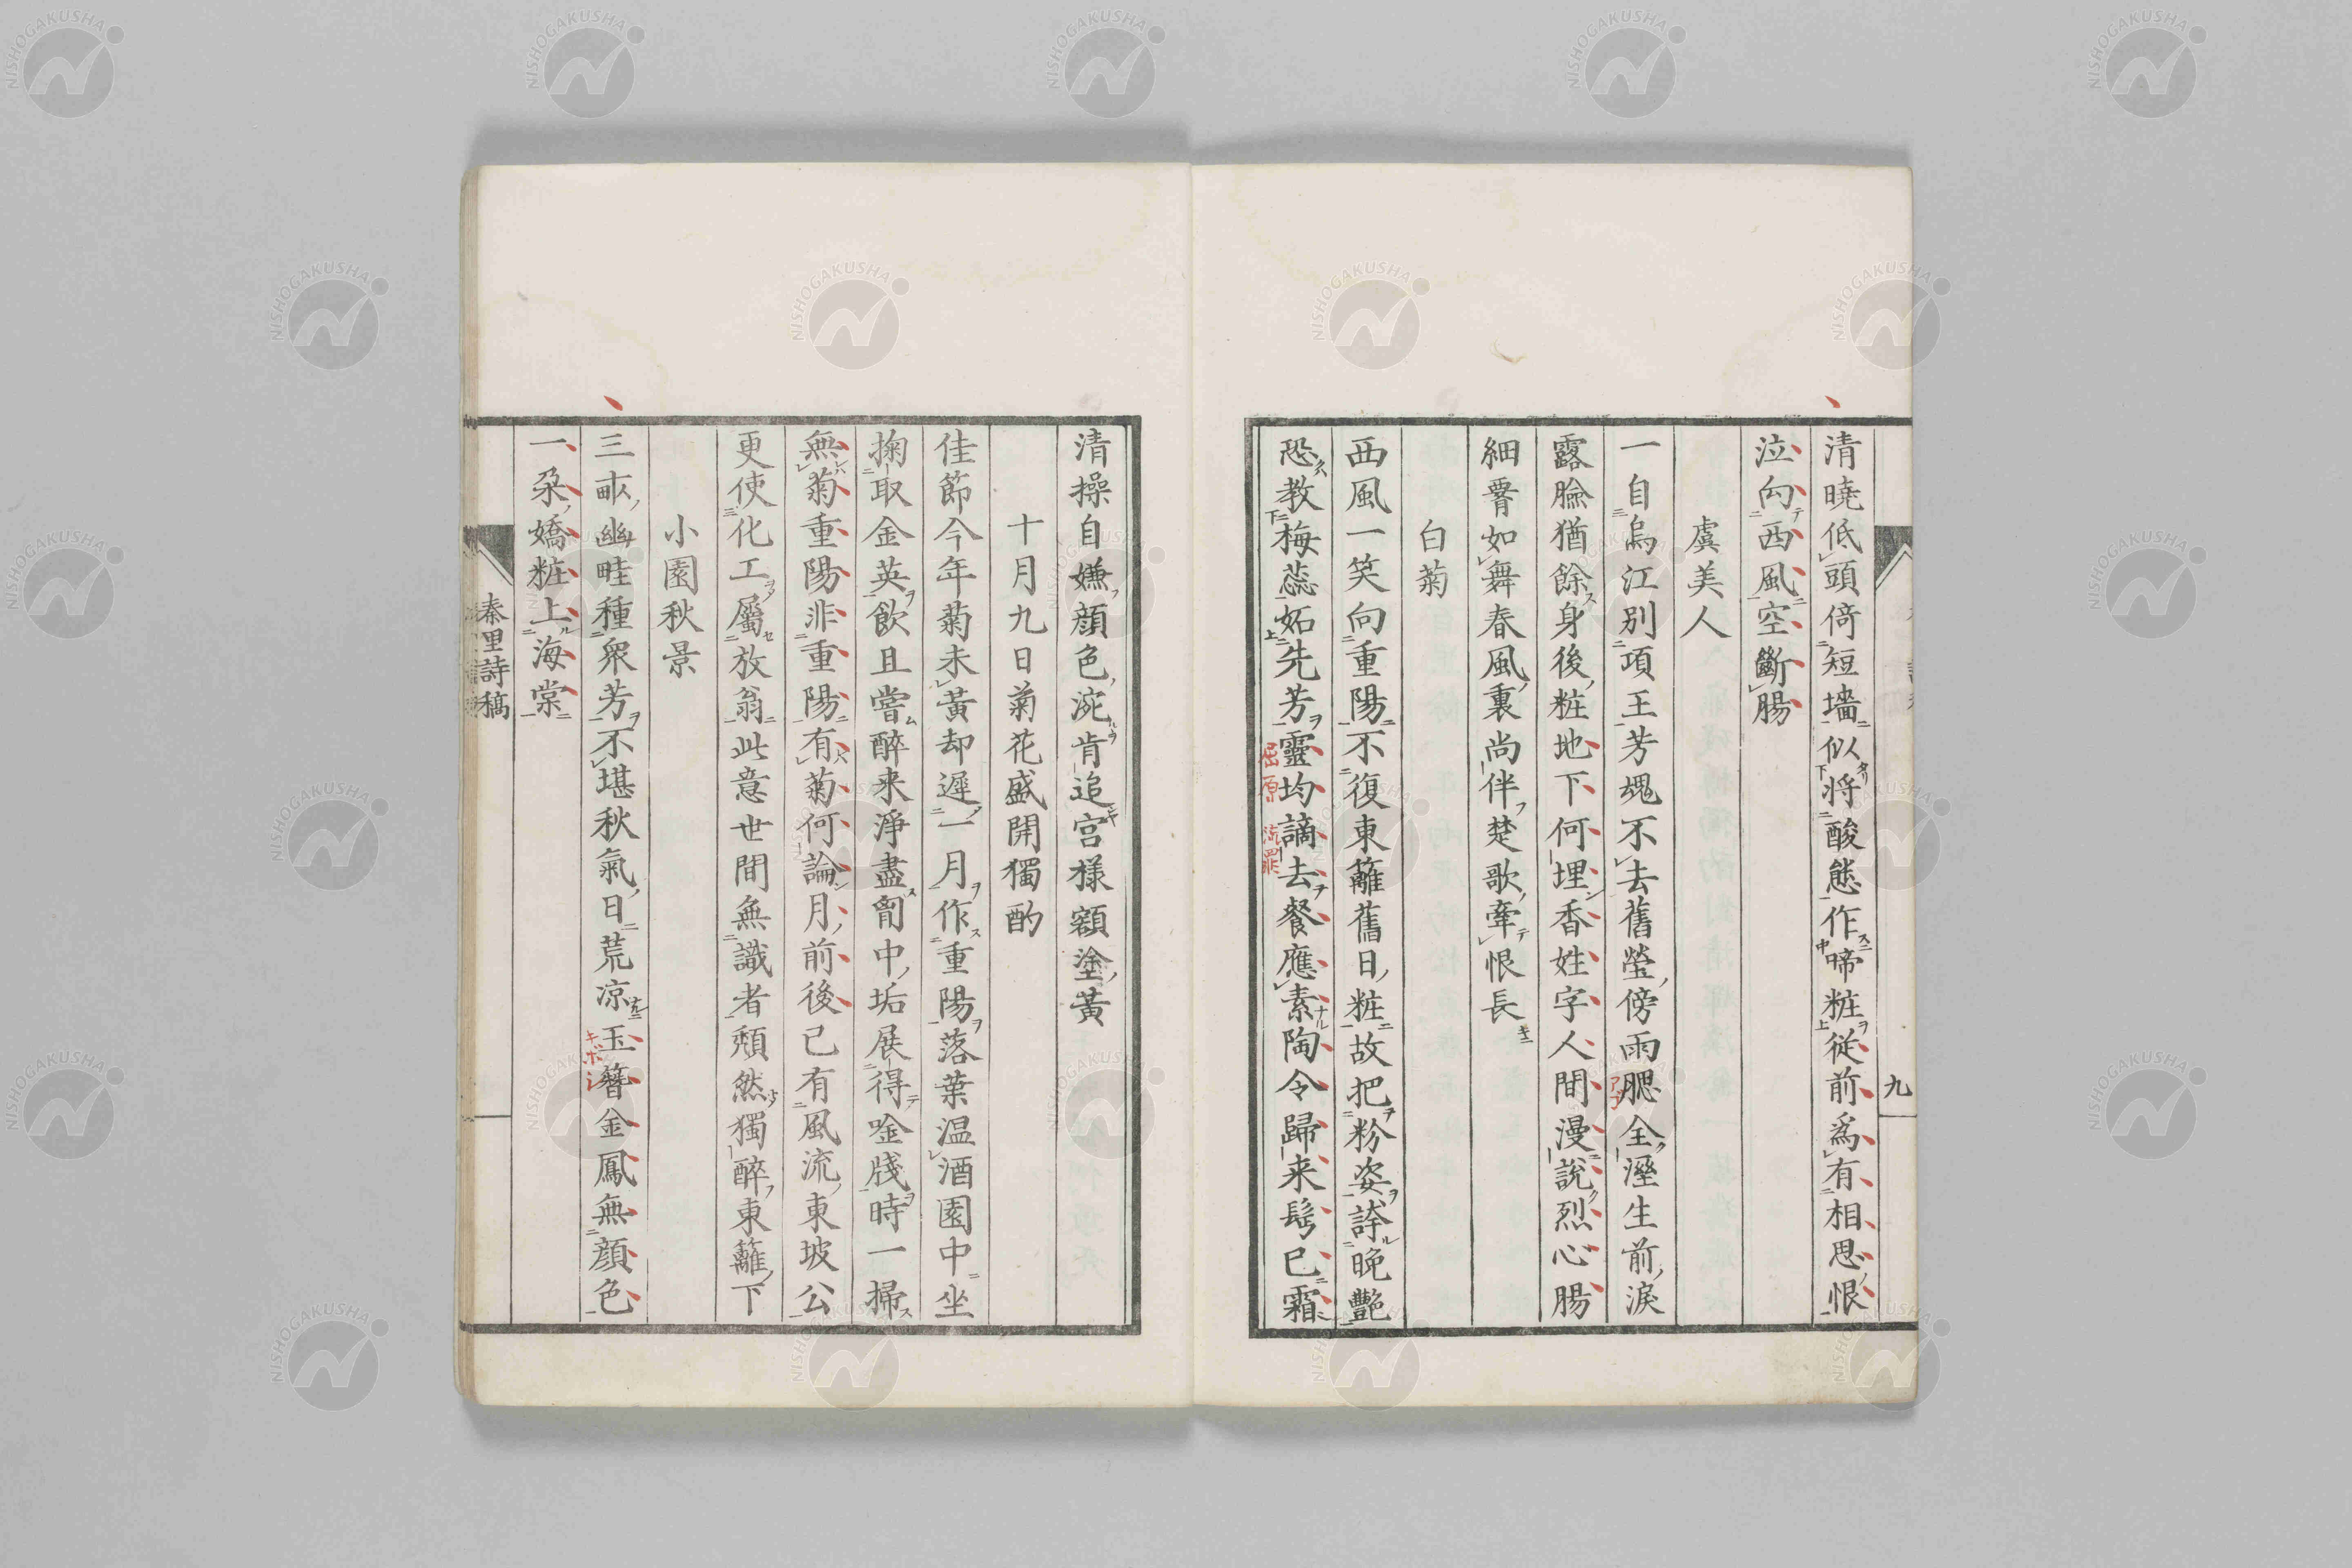 九
清曉低頭倚短墻似將酸態作啼粧從前爲有相思恨
泣向西風空斷腸
虞美人
一自烏江別項王芳魂不去舊塋傍雨腮全溼生前淚
露臉猶餘身後粧地下何埋香姓字人間漫說烈心腸
細腰如舞春風裏尚伴楚歌牽恨長
白菊
西風一笑向重陽不復東籬舊日粧故把粉姿誇晚艷
恐教梅蕊妬先芳靈均謫去餐應素陶令歸来髩已霜
屈原 流罪
清操自嫌顔色涴肯追宮様額塗黃
十月九日菊花盛開獨酌
佳節今年菊未黃却遲一月作重陽落葉温酒園中坐
掬取金英飲且嘗醉来淨盡胷中垢展得唫牋時一掃
無菊重陽非重陽有菊何論月前後已有風流東坡公
更使化工屬放翁此意世間無識者頽然獨醉東籬下
小園秋景
三畝幽畦種衆芳不堪秋氣日荒凉玉簪金鳳無顔色
一朶嬌粧上海棠
秦里詩稿
NISHOGAKUSHA